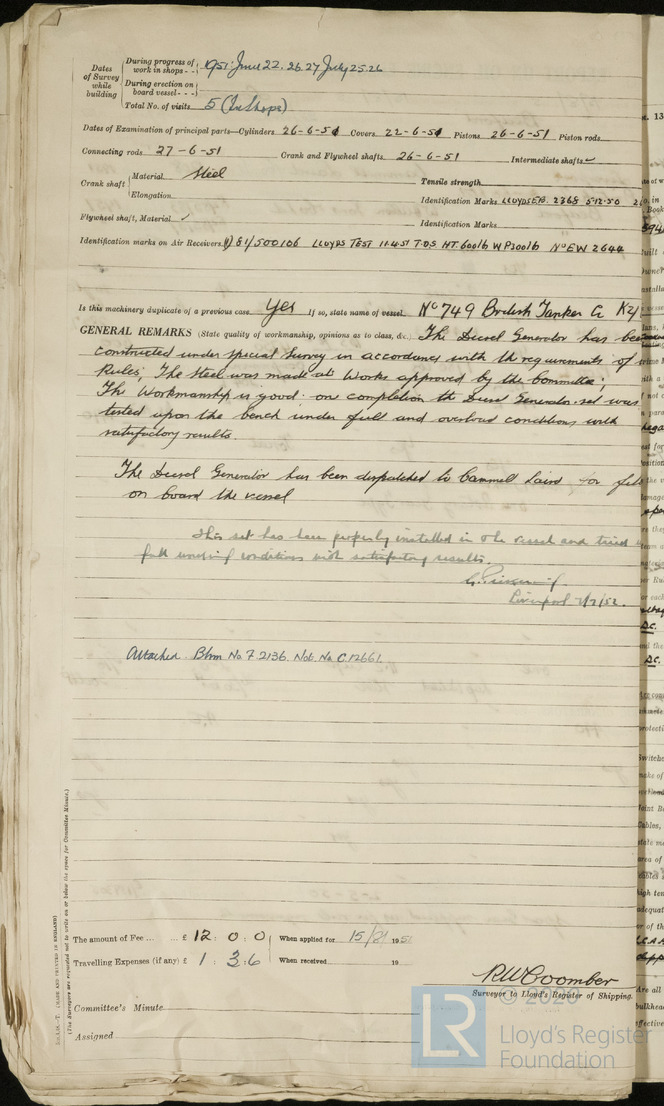 Dates of Survey while building
During progress of work in shops - - 1951: June 22. 26. 27 July 25. 26
During erection on board vessel - - -
Total No. of visits 5 (In Shops)
Dates of Examination of principal parts—Cylinders 26-6-51 Covers 22-6-51 Pistons 26-6-51 Piston rods
Connecting rods 27-6-51 Crank and Flywheel shafts 26-6-51 Intermediate shafts
Crank shaft Material Steel Tensile strength
Elongation Identification Marks LLOYDS 2368 5-12-50
Flywheel shaft, Material ✓ Identification Marks
Identification marks on Air Receivers 81/500106 LLOYDS TEST 11.4.51 T.D.S HT. 600lb WP300lb No EW 2644
Is this machinery duplicate of a previous case Yes If so, state name of vessel No 749 British Tanker Co
GENERAL REMARKS (State quality of workmanship, opinions as to class, &c. The Diesel Generator has been
constructed under special survey in accordance with the requirements of
Rules, The steel was made at Works approved by the Committee;
The Workmanship is good: one completion the Diesel Generator set was
tested upon the bench under full and overload conditions with
satisfactory results.
The Diesel Generator has been dispatched to Cammell Laird for
on board the vessel
This set has been properly installed in the vessel and tried
full working conditions with satisfactory results.
Liverpool /7/52.
Attached. Bhm No F 2136. Not. No C.12661.
The amount of Fee ... ... £ 12 : 0 : 0 When applied for 15/8/ 1951
Travelling Expenses (if any) £ 1 : 3 : 6 When received 19
RW Coomber
Surveyor to Lloyd's Register of Shipping.
Committee's Minute
Assigned
(MADE AND PRINTED IN ENGLAND)
(The Surveyors are requested not to write on or below the space for Committee Minute.)
© 2020
LR
Lloyd's Register
Foundation